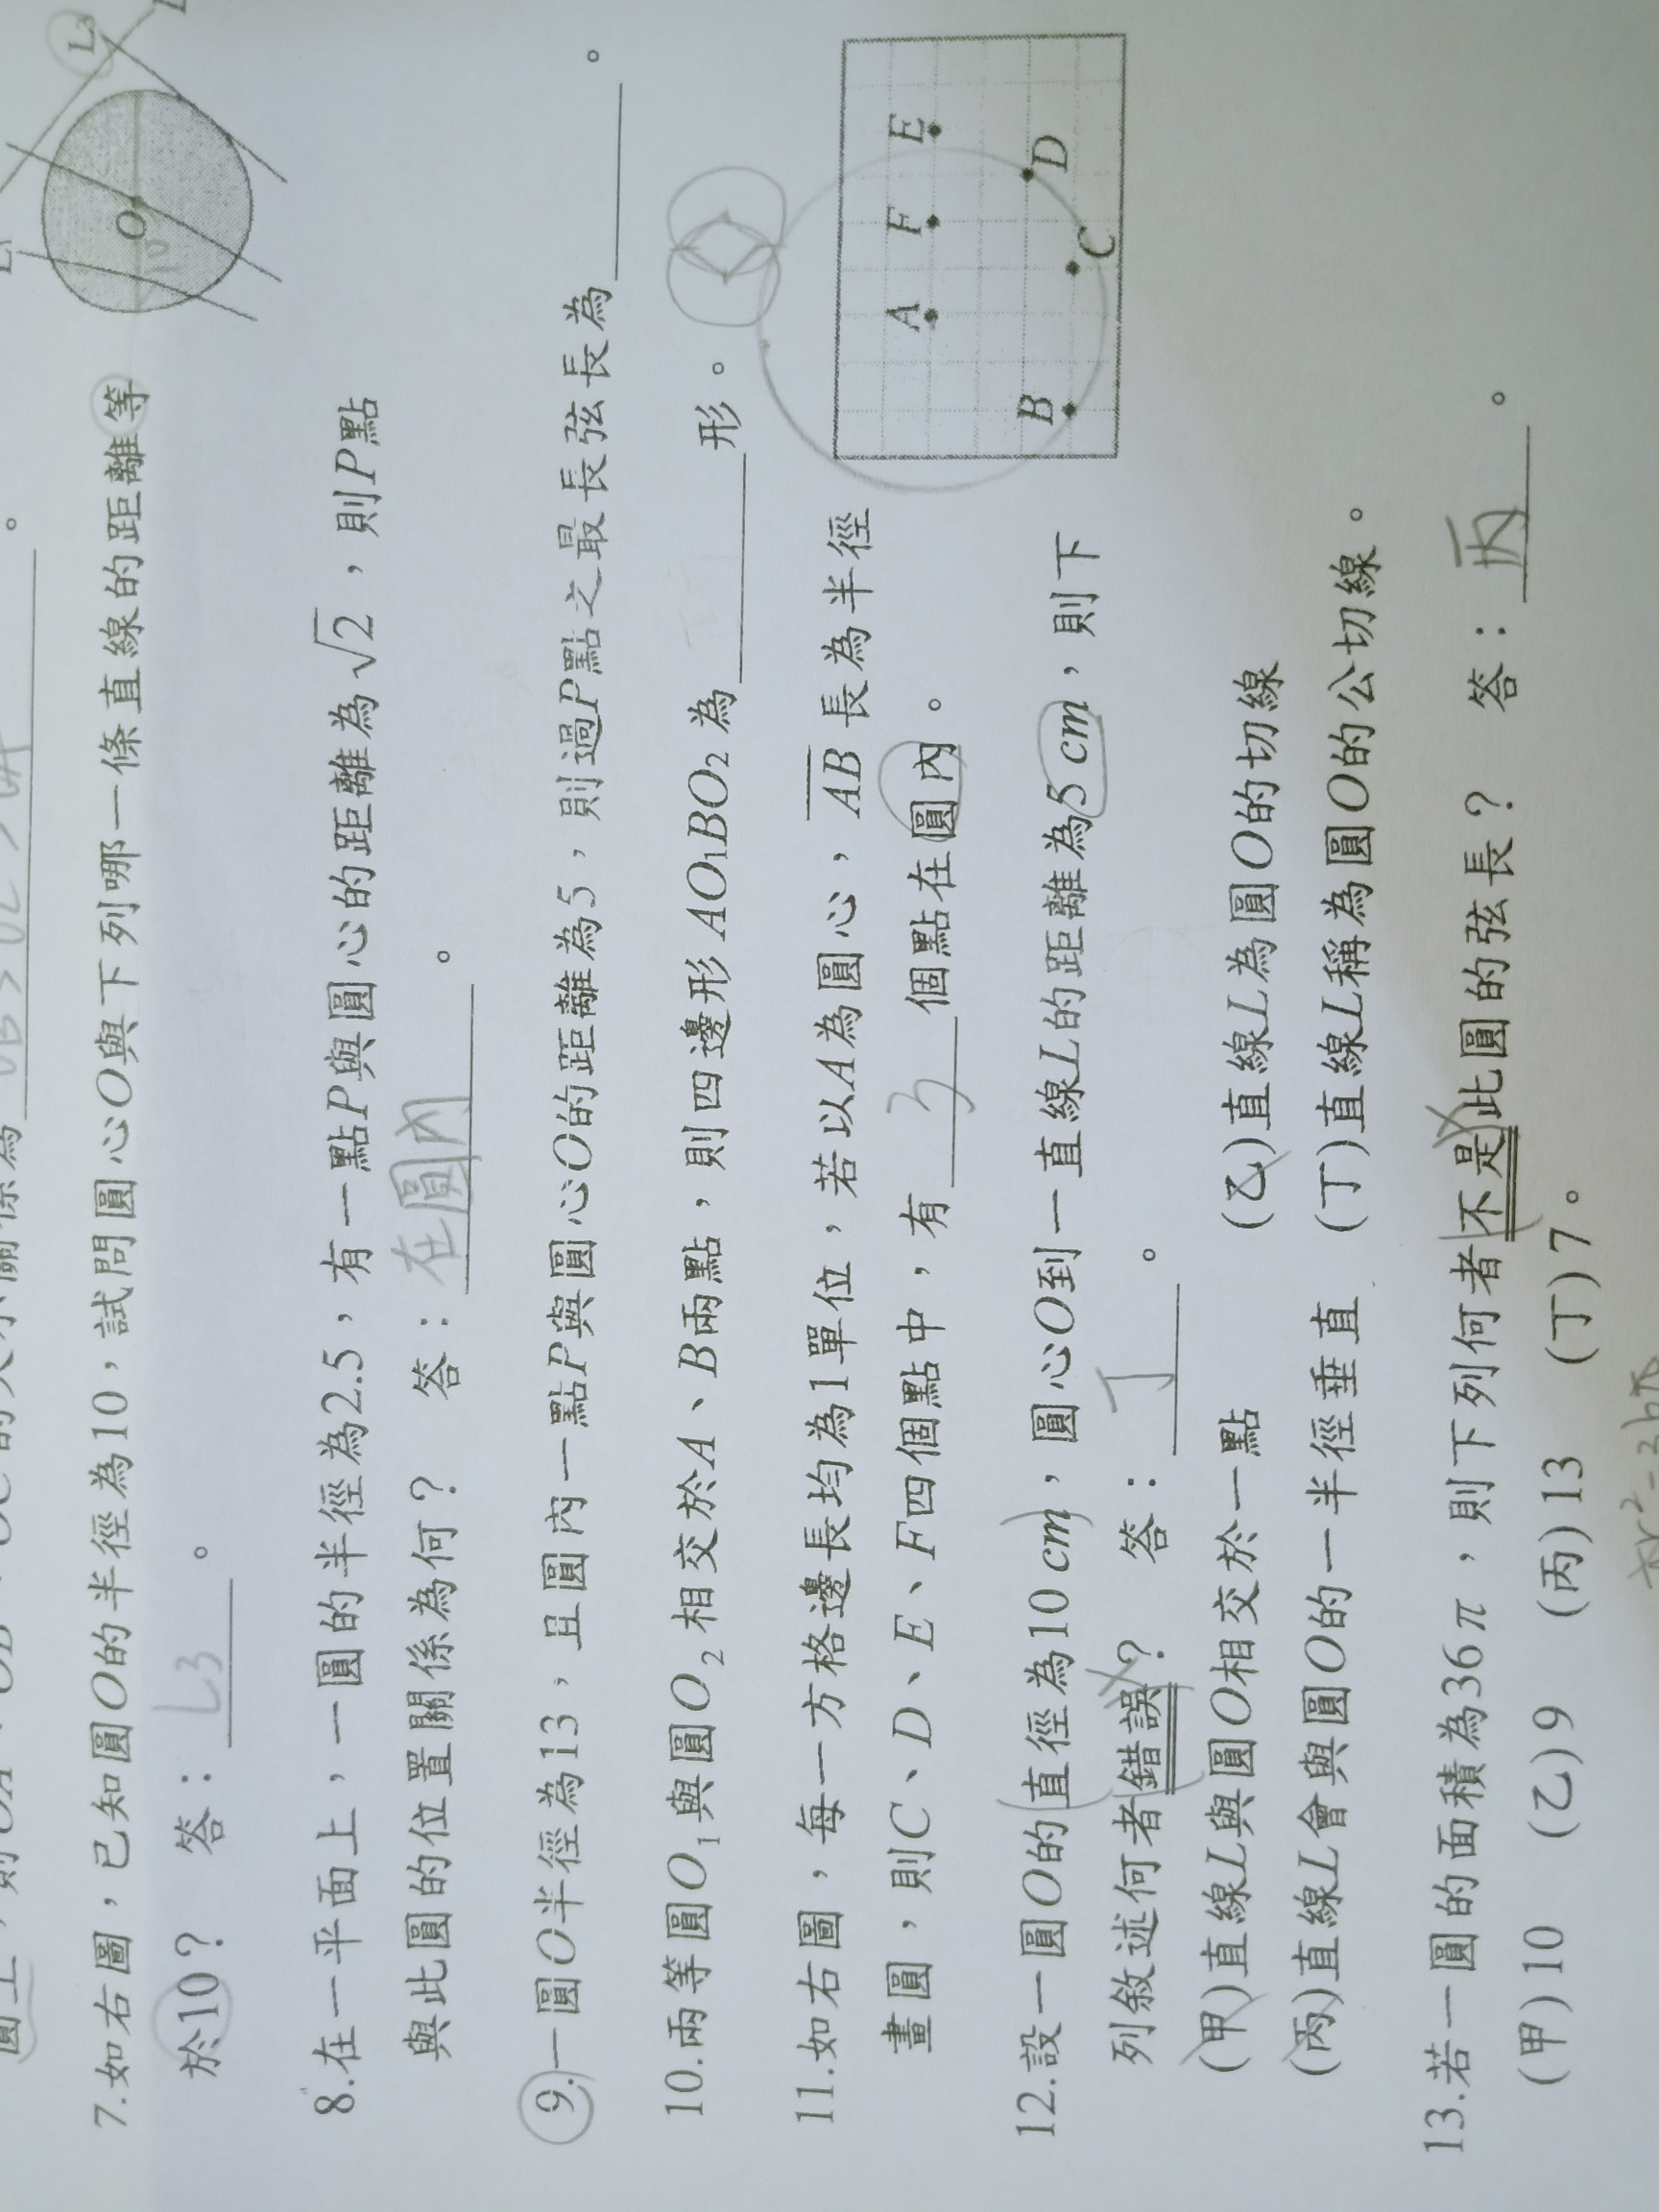 。
7.如右圖，已知圓O的半徑為10，試問圓心O與下列哪一條直線的距離等
於10？ 答：L3。
O
L3
8.在一平面上，一圓的半徑為2.5，有一點P與圓心的距離為√2，則P點
與此圓的位置關係為何？ 答：在圓內。
9.一圓O半徑為13，且圓內一點P與圓心O的距離為5，則過P點之最長弦長為。
10.兩等圓O₁與圓O₂相交於A、B兩點，則四邊形AO₁BO₂為形。
11.如右圖，每一方格邊長均為1單位，若以A為圓心，AB長為半徑
畫圓，則C、D、E、F四個點中，有3個點在圓內。
A F E
B C D
12.設一圓O的直徑為10cm，圓心O到一直線L的距離為5cm，則下
列敘述何者錯誤？ 答：丁。
(甲)直線L與圓O相交於一點 (乙)直線L為圓O的切線
(丙)直線L會與圓O的一半徑垂直 (丁)直線L稱為圓O的公切線。
13.若一圓的面積為36π，則下列何者不是此圓的弦長？ 答：丙。
(甲)10 (乙)9 (丙)13 (丁)7。
πr²=36π